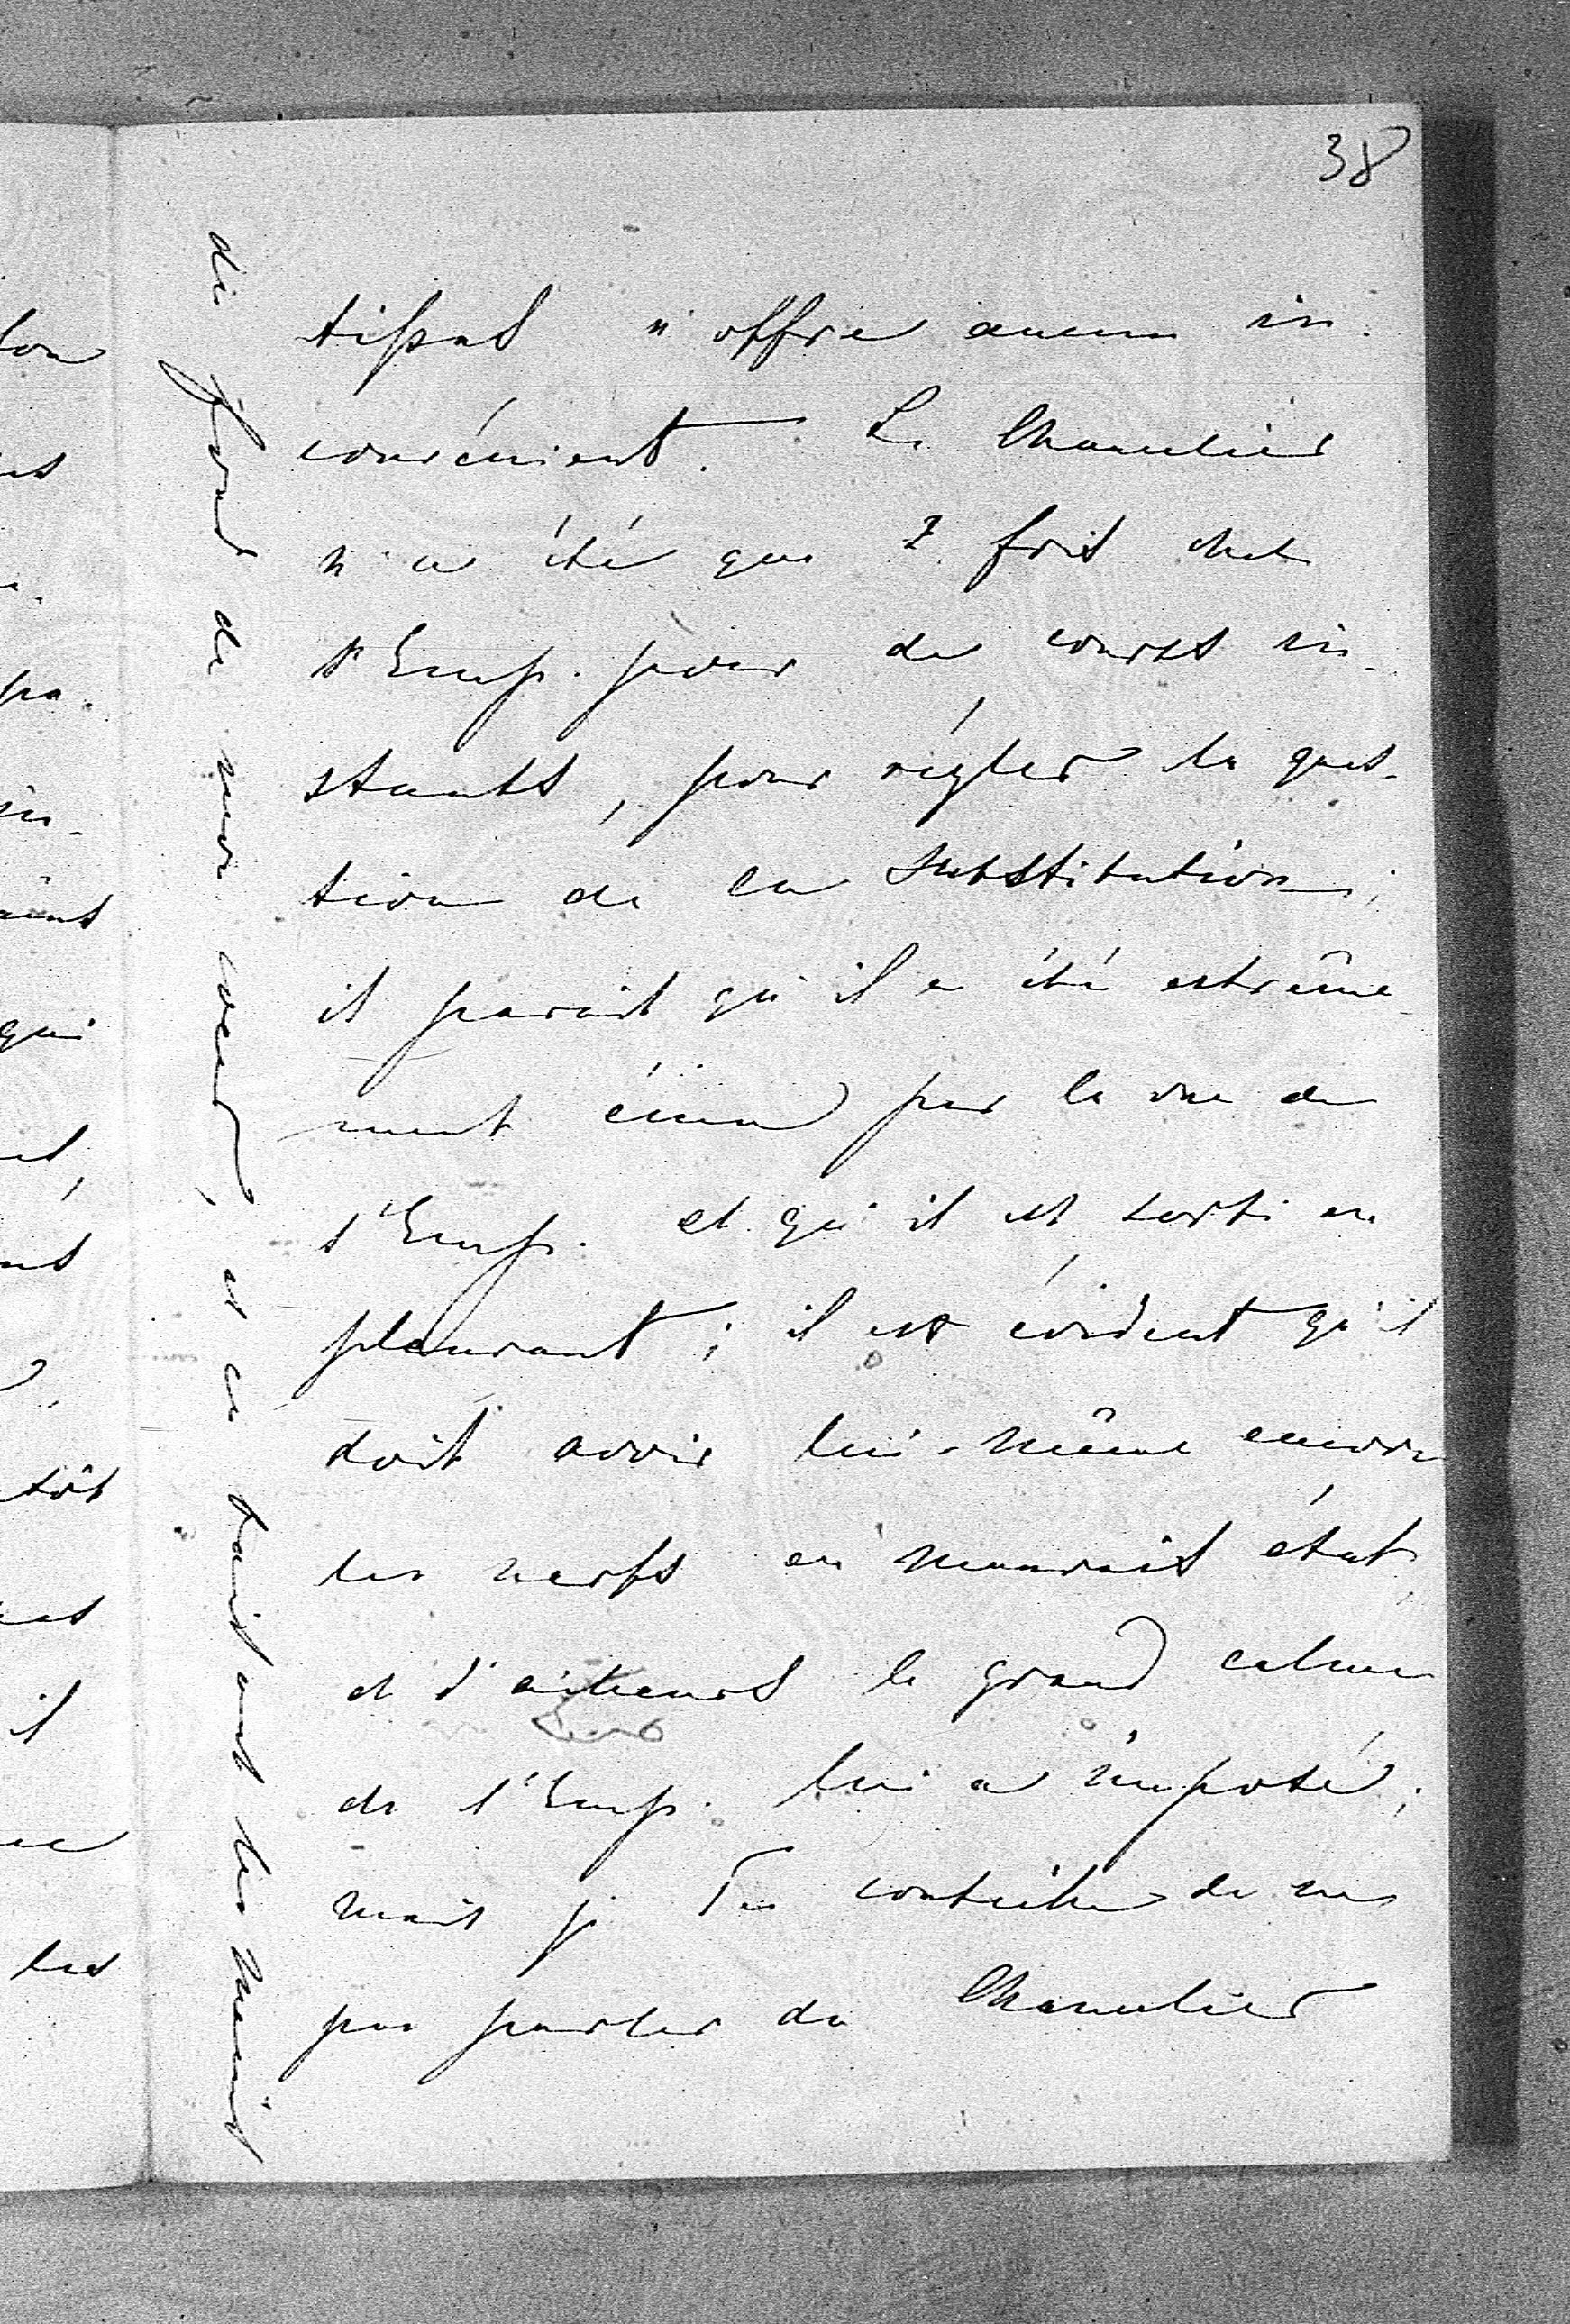 38
tissent n'offre aucun in-
convénient. Le Chancelier
n'a été que 2 fois chez
l'Emp. pour de courts in-
stants, pour régler la ques-
tion de la substitution;
il parait qu'il a été extrême-
ment ému par la vue de
l'Emp. et qu'il est sorti en
pleurant; il est évident qu'il
doit avoir lui-même encore
les nerfs en mauvais état,
et d'ailleurs le grand calme
de l'Emp. lui a imposé;
mais je Te conseille de ne
pas parler du Chancelier
du fond de mon coeur, et en baisant les mains